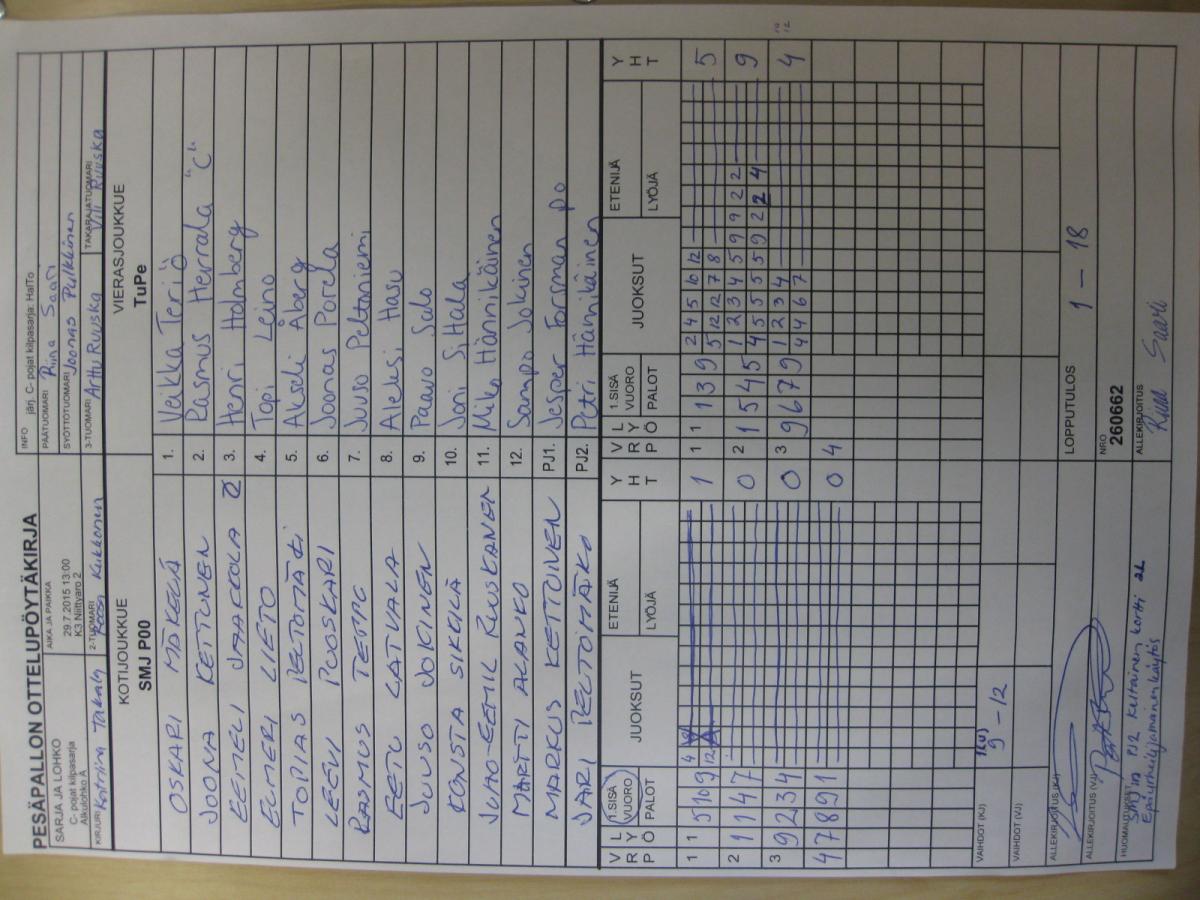 PESÄPALLON OTTELUPÖYTÄKIRJA
INFO järj. C- pojat kilpasarja: HaiTo
SARJA JA LOHKO
C- pojat kilpasarja
Alkulohko A
AIKA JA PAIKKA
29.7.2015 13:00
K3 Niittyaro 2
PÄÄTUOMARI Riina Saari
SYÖTTÖTUOMARI Joonas Pulkkinen
KIRJURI Katriina Takala
2-TUOMARI Roosa Kukkonen
3-TUOMARI Arttu Ruuska
TAKARAJATUOMARI Vili Ruuska
KOTIJOUKKUE
SMJ P00
VIERASJOUKKUE
TuPe
OSKARI MÄKELÄ 1. Veikka Teriö
JOONA KETTUNEN 2. Rasmus Herrala "C"
EEMELI JAAKKOLA 3. Henri Holmberg
ELMERI LIETO 4. Topi Leino
TOPIAS PELTOMÄKI 5. Akseli Åberg
LEEVI PUOSKARI 6. Joonas Porela
RASMUS TEPPO 7. Juuso Peltoniemi
EETU LATVALA 8. Aleksi Hasu
JUUSO JOKINEN 9. Paavo Salo
KONSTA SIKKILÄ 10. Joni Sihtala
JUHO-EEMIL RUUSKANEN 11. Miko Hännikäinen
MARTTI ALANKO 12. Sampo Jokinen
MARKUS KETTUNEN PJ1. Jesper Forsman po
JARI PELTOMÄKI PJ2. Petri Hännikäinen
VRP LYÖ 1.SISÄ VUORO PALOT JUOKSUT ETENIJÄ LYÖJÄ YHT VRP LYÖ 1.SISÄ VUORO PALOT JUOKSUT ETENIJÄ LYÖJÄ YHT
1 1 5 10 9 4 12 1 1 1 1 3 9 2 4 5 10 12 5
5 12 12 7 8
2 1 1 4 7 0 2 1 5 4 5 1 2 3 4 5 9 9 2 2 9
4 5 5 5 5 9 2 2 4
3 9 2 3 4 0 3 9 6 7 9 1 2 3 4 4
4 4 6 7
4 7 8 9 1 0 4
VAIHDOT (KJ) 1(U) 9-12
VAIHDOT (VJ)
ALLEKIRJOITUS (KJ)
LOPPUTULOS 1 - 18
ALLEKIRJOITUS (VJ)
NRO
260662
HUOMAUTUKSET
SMJ:n PJ2 Keltainen kortti 2L
Epäurheilijamainen käytös
ALLEKIRJOITUS
Riina Saari